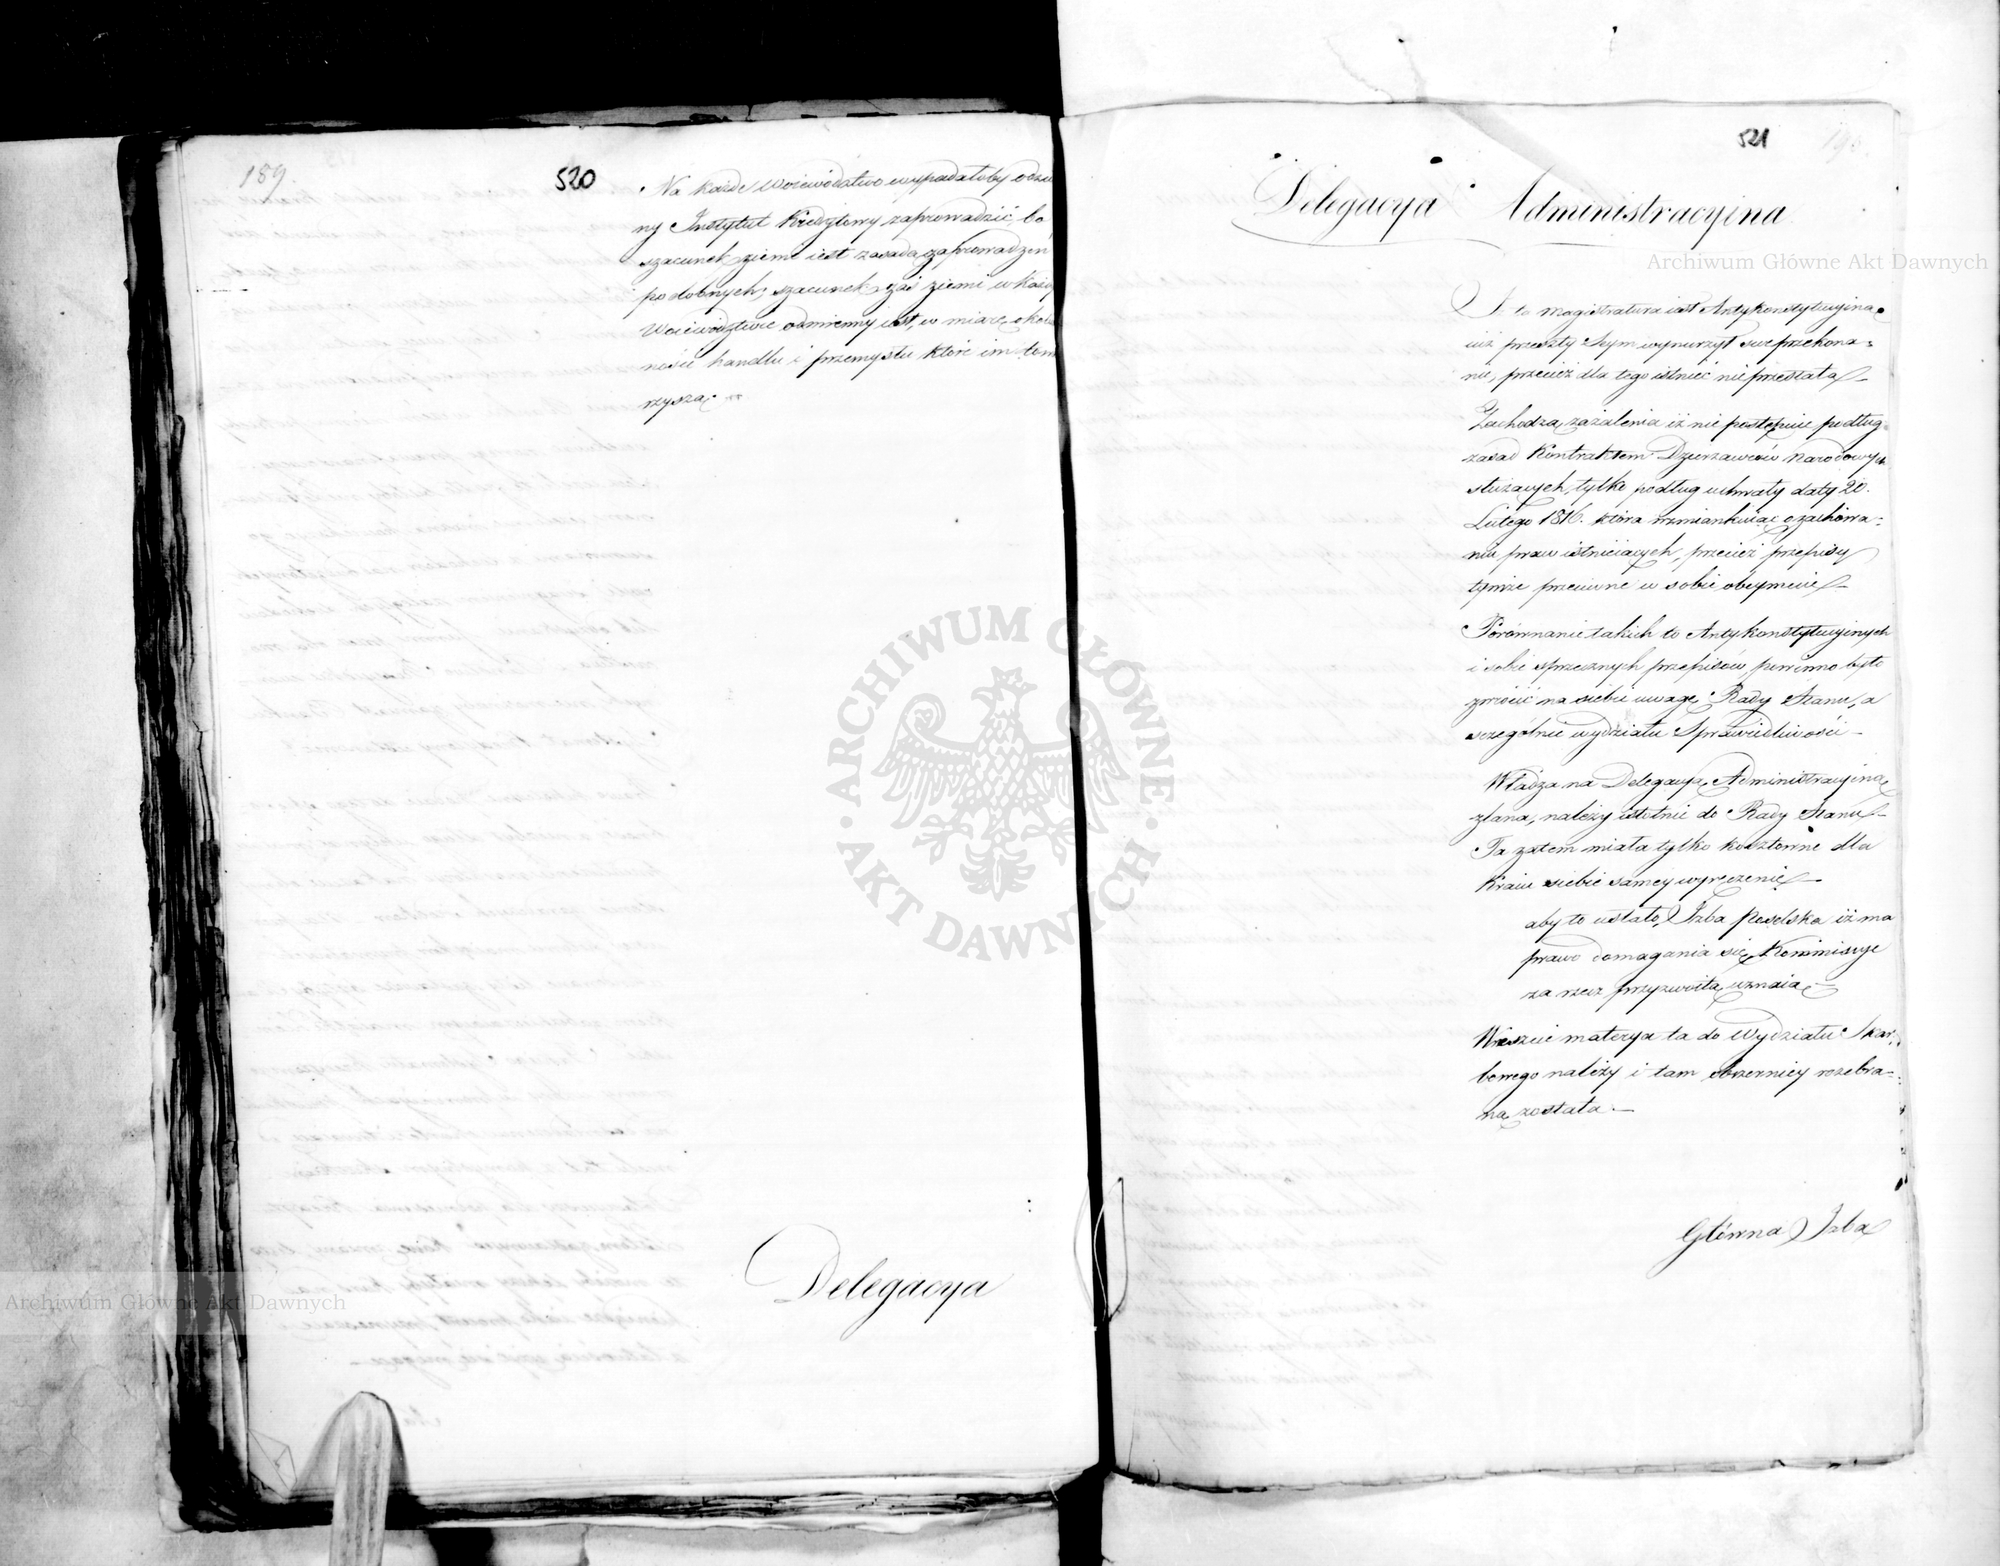 189.
520
Na każde Województwo wypadałoby odzie
ny Instytut Kredytowy zaprowadzić, bo
szacunek ziemi iest zasadą zaprowadzen
podobnych; szacunek zaś ziemi w każd
Województwie odmienny iest, w miarę okoli
ności handlu i przemysłu które im tow
rzyszą.
Delegacya
521
190.
Delegacya Administracyina
Iż ta magistratura iest Antykonstytucyiną
iuż przeszły Seym wynurzył swe przekona=
nie, przecież dla tego istnieć nie przestała
Zachodzą zażalenia iż nie postępuie podług
zasad Kontraktem Dzierzawców Narodowych
służących, tylko podług uchwały daty 20.
Lutego 1816. która wzmiankuiąc o zachowa=
niu praw istnieiących, przecież przepisy
tymże przeciwne w sobie obeymuie
Porównanie takich to Antykonstytucyinych
i sobie sprzecznych przepisów powinno było
zwrócić na siebie uwagę Rady Stanu, a
szczególnie wydziału Sprawiedliwości
Władza na Delegacyą Administracyiną
zlana, należy istotnie do Rady Stanu
Ta zatem miała tylko kosztowne dla
Kraiu siebie samey wyręczenie
aby to ustało, Izba Poselska iż ma
prawo domagania się, Kommissye
za rzecz przyzwoitą uznaią
Wreszcie materya ta do Wydziału Skar=
bowego należy i tam obszerniey rozebra=
ną została.
Główna Izba
ARCHIWUM GŁÓWNE
AKT DAWNYCH
Archiwum Główne Akt Dawnych
Archiwum Główne Akt Dawnych